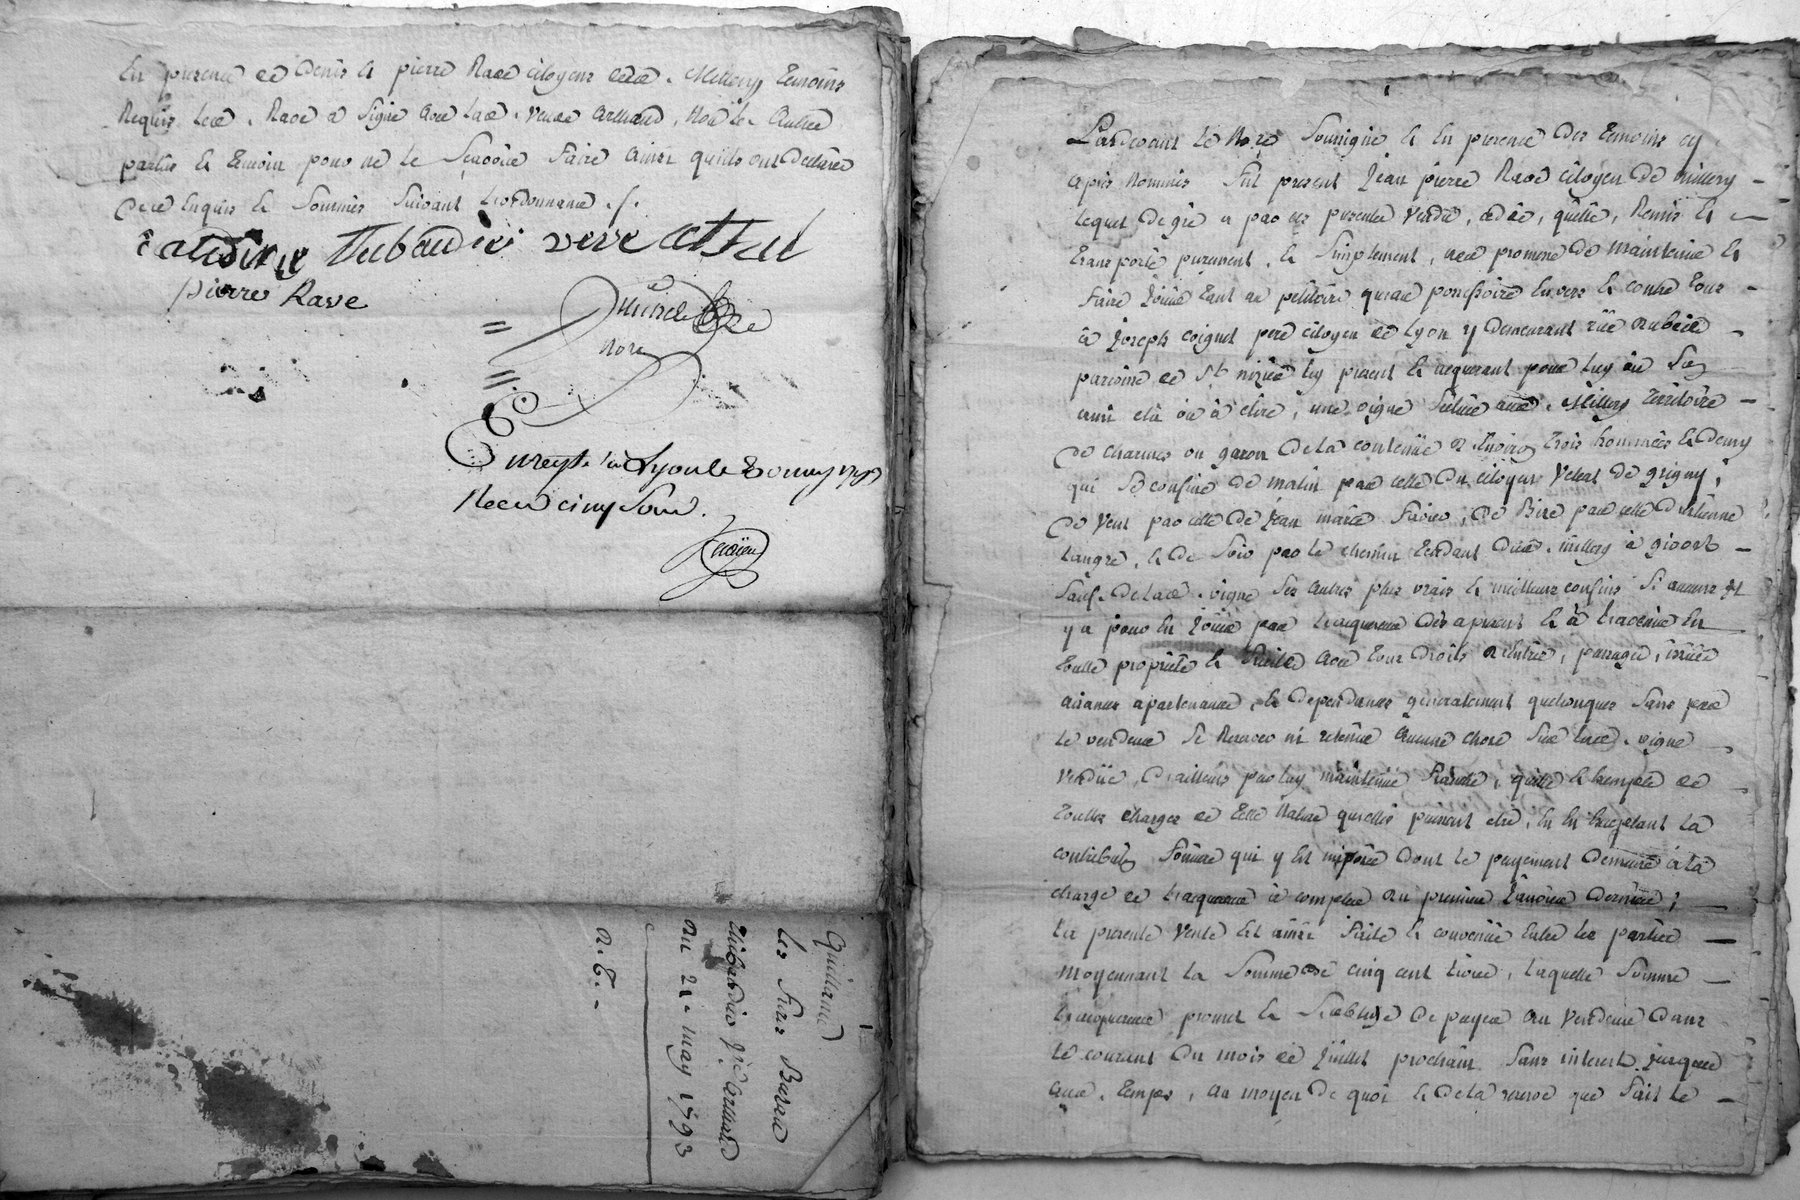 En presence de Denis et pierre Rave citoyens dud. Millery temoins
Requis led. Rave a signé avec lad. veuve Arthaud, non les autres
parties et temoin pour ne le sçavoir faire ainsi qu'ils ont declaré
de ce enquis et sommés suivant l'ordonnance ./.
Thibaudier veuve
pierre Rave
Nore
Lyon le
Recu cinq sous.
Quittance
les
Thibaudier
du 21 may 1793
Pardevant le Nore soussigné et en presence des temoins cy
après nommés fut present Jean pierre Rave citoyen de Millery
lequel de gré a par ces presentes vendu, cédé, quitté, Remis et
transporté purement, et simplement, avec promesse de maintenue et
faire jouir tant au petitoire qu'au possessoire envers et contre tous
à Joseph coignet pere citoyen de Lyon y demeurant rüe
paroisse de St nizier icy present et acquerant pour luy ou son
ami elu ou à elire, une vigne située aud. Millery territoire
de charmes ou garon de la contenüe d'environ trois hommées et demy
qui se confine de matin par celle du citoyen de grigny,
de vent par celle de Jean marie, de Bize par celle d'Etienne
et de soir par le chemin tendant dud. millery à givors
sauf de lad. vigne ses autres plus vrais et meilleurs confins si aucuns
y a pour en jouir par l'acquereur dès à present et à l'avenir en
toutte proprieté et avec tous droits d'entrée, passages, issües
aisances apartenances, et dependances generalement quelconques sans par
le vendeur se Reserver ni retenir aucune chose sur lad. vigne
vendüe, d'ailleurs par luy maintenüe franche, quitte et exempte de
touttes charges de telle nature qu'elles puissent etre, en en exceptant la
contribution fonciere qui y est imposée dont le payement demeure à la
charge de l'acquereur à compter du premier Janvier dernier;
La presente vente est ainsi faite et convenüe entre les parties
moyennant la somme de cinq cent livres, laquelle somme
l'acquereur promet et s'oblige de payer au vendeur dans
le courant du mois de Juillet prochain sans interest jusques
aud. temps, au moyen de quoi et de la reserve que fait le